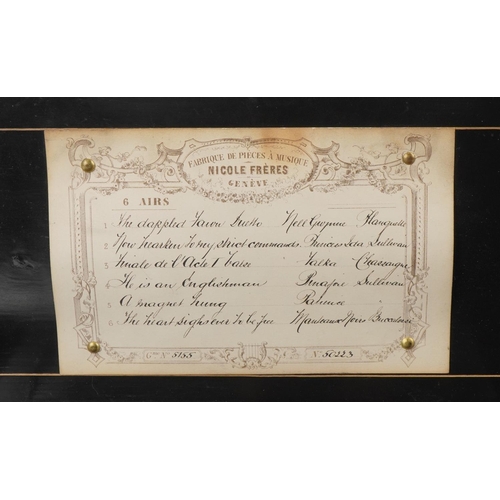 FABRIQUE DE PIÈCES À MUSIQUE
NICOLE FRÈRES
GENÈVE
6 AIRS
1 The dappled Fawn Duetto Nell Gwynne Planquette
2 Now hearken to my strict commands Princess Ida Sullivan
3 Finale de l'Acte 1 Falka Chassaigne
4 He is an Englishman Pinafore Sullivan
5 A magnet hung Patience
6 The heart sighs ever to be free Manteaux Noirs Bucalossi
Gme No 5155 No 50223